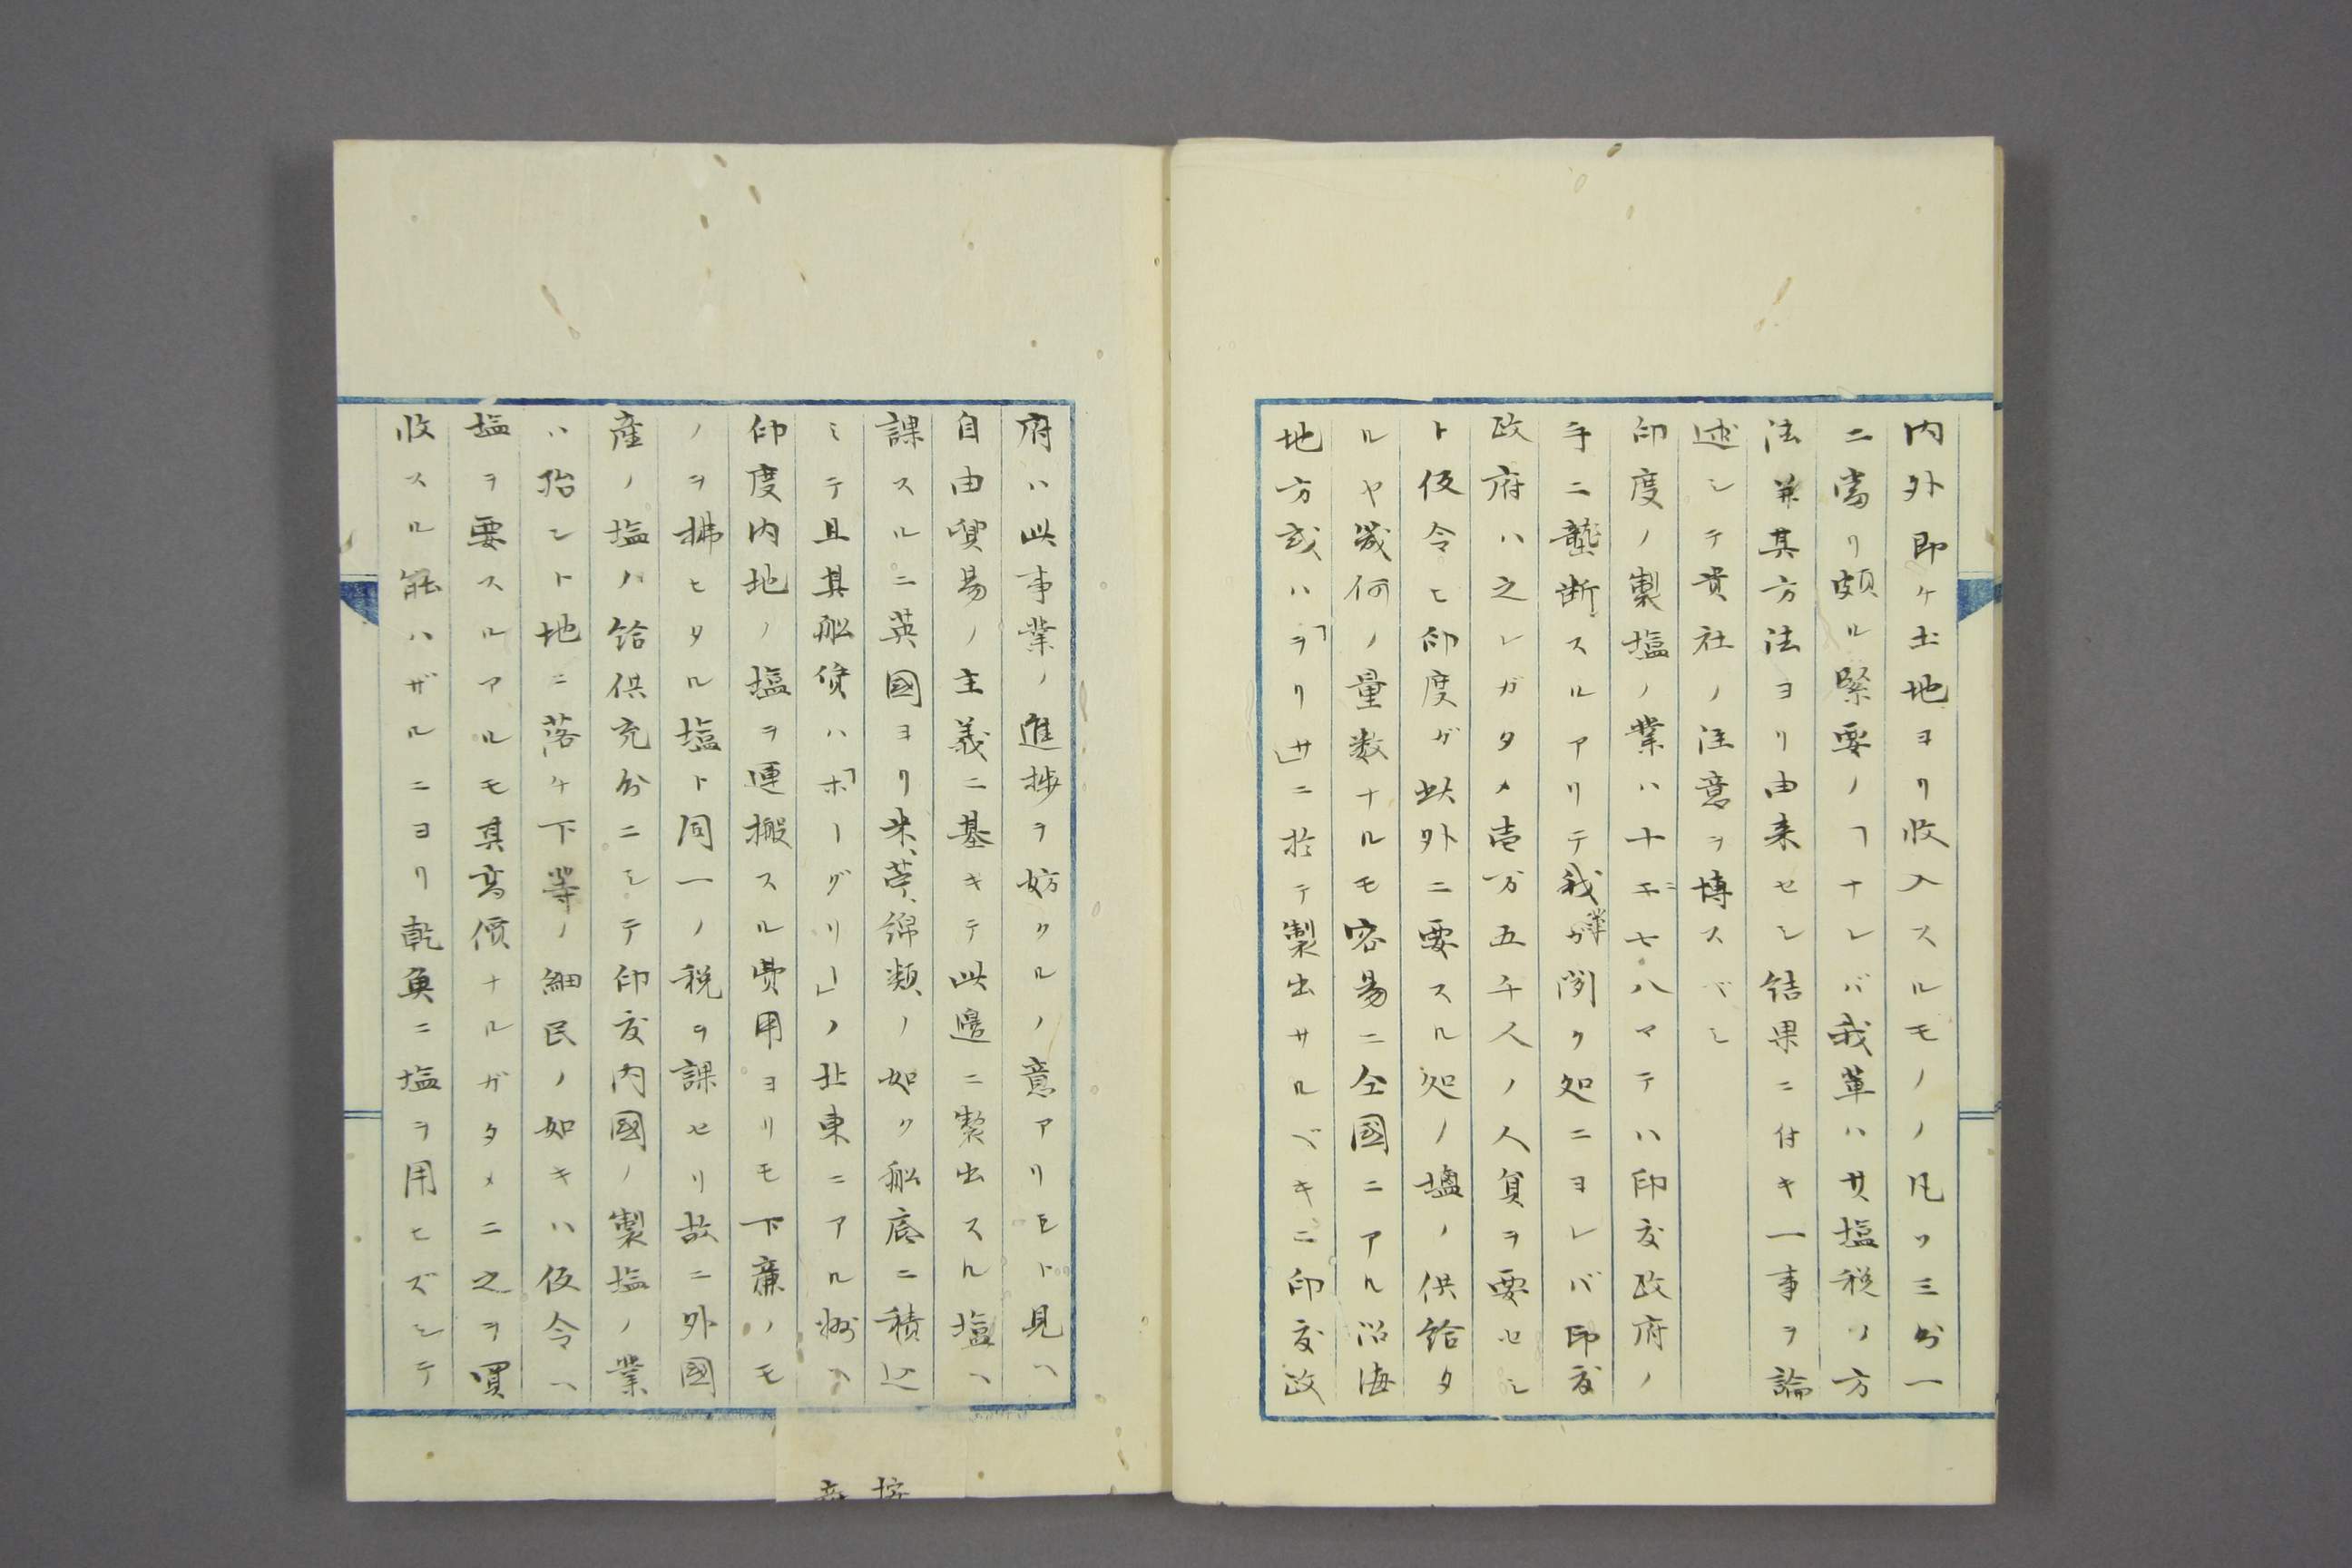 内外即ケ土地ヨリ收入スルモノノ凡ソ三分一
ニ當リ頗ル緊要ノヿナレバ我輩ハ其塩税ノ方
法并其方法ヨリ由来セシ結果ニ付キ一事ヲ論
述シテ貴社ノ注意ヲ博スベシ
印度ノ製塩ノ業ハ十二七八マテハ印度政府ノ
手ニ壟断スルアリテ我輩ガ聞ク処ニヨレバ印度
政府ハ之レガタメ壱万五千人ノ人員ヲ要セシ
ト仮令ヒ印度ガ此外ニ要スル処ノ塩ノ供給タ
ルヤ幾何ノ量数ナルモ容易ニ全國ニアル沿海
地方或ハ「ヲリサ」ニ於テ製出サルベキニ印度政
府ハ此事業ノ進捗ヲ妨クルノ意アリモト見ヘ
自由貿易ノ主義ニ基キテ此邊ニ製出スル塩ヘ
課スルニ英國ヨリ来ル綿類ノ如ク船底ニ積込
ミテ且其船賃ハ「ホーグリー」ノ北東ニアル州ヘ
印度内地ノ塩ヲ運搬スル費用ヨリモ下廉ノモ
ノヲ拂ヒタル塩ト同一ノ税ヲ課セリ故ニ外國
産ノ塩ノ給供充分ニシテ印度内國ノ製塩ノ業
ハ殆ント地ニ落ケ下等ノ細民ノ如キハ仮令ヘ
塩ヲ要スルアルモ其高價ナルガタメニ之ヲ買
收スル能ハザルニヨリ乾魚ニ塩ヲ用ヒズシテ